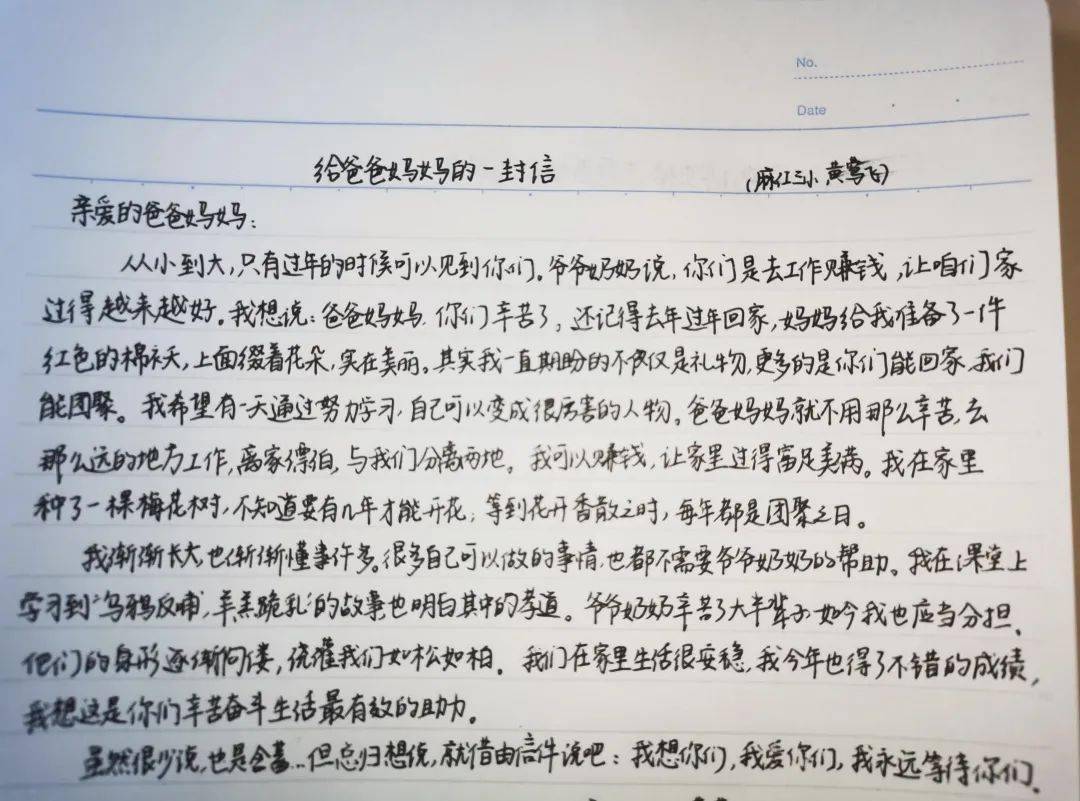 No.
Date
给爸爸妈妈的一封信 (麻江三小 黄莺飞)
亲爱的爸爸妈妈:
从小到大,只有过年的时候可以见到你们。爷爷奶奶说,你们是去工作赚钱,让咱们家
过得越来越好。我想说:爸爸妈妈,你们辛苦了,还记得去年过年回家,妈妈给我准备了一件
红色的棉衣,上面缀着花朵,实在美丽。其实我一直期盼的不仅仅是礼物,更多的是你们能回家,我们
能团聚。我希望有一天通过努力学习,自己可以变成很厉害的人物。爸爸妈妈就不用那么辛苦,去
那么远的地方工作,离家漂泊,与我们分离两地。我可以赚钱,让家里过得富足美满。我在家里
种了一棵梅花树,不知道要有几年才能开花;等到花开香散之时,每年都是团聚之日。
我渐渐长大,也渐渐懂事许多。很多自己可以做的事情,也都不需要爷爷奶奶的帮助。我在课堂上
学习到“乌鸦反哺,羊羔跪乳”的故事,也明白其中的孝道。爷爷奶奶辛苦了大半辈子,如今我也应当分担,
他们的身形逐渐佝偻,浇灌我们如松如柏。我们在家里生活很安稳,我今年也得了不错的成绩,
我想这是你们辛苦奋斗生活最有效的助力。
虽然很少说,也是含蓄..但总归想说,就借由信件说吧:我想你们,我爱你们,我永远等待你们.